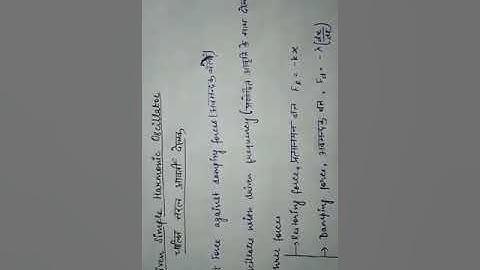 iven Simple Harmonic Oscillator
चालित सरल आवर्ती दोलक
t force against damping forces (अवमन्दक बलों)
cillates when driven frequency
three forces
→ Restoring force, प्रत्यानयन बल F_R = -kx
→ Damping force, अवमन्दक बल, F_d = -λ(dx/dt)